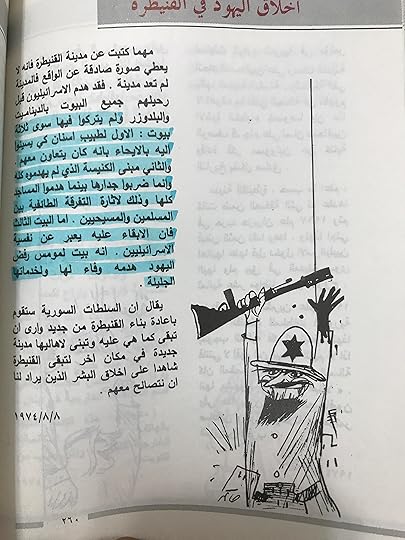 أخلاق اليهود في القنيطرة
مهما كتبت عن مدينة القنيطرة فانه لا
يعطي صورة صادقة عن الواقع فالمدينة
لم تعد مدينة . فقد هدم الاسرائيليون قبل
رحيلهم جميع البيوت بالديناميت
والبلدوزر ولم يتركوا فيها سوى ثلاثة
بيوت : الاول لطبيب اسنان كي يسيئوا
اليه بالايحاء بانه كان يتعاون معهم .
والثاني مبنى الكنيسة الذي لم يهدموه كله
وانما ضربوا جدارها بينما هدموا المساجد
كلها وذلك لاثارة التفرقة الطائفية بين
المسلمين والمسيحيين . اما البيت الثالث
فان الابقاء عليه يعبر عن نفسية
الاسرائيليين . انه بيت لمومس رفض
اليهود هدمه وفاء لها ولخدماتها
الجليلة .
يقال ان السلطات السورية ستقوم
باعادة بناء القنيطرة من جديد وأرى ان
تبقى كما هي عليه وتبنى لاهاليها مدينة
جديدة في مكان اخر لتبقى القنيطرة
شاهدا على اخلاق البشر الذين يراد لنا
ان نتصالح معهم .
١٩٧٤/٨/٨
٢٦٠